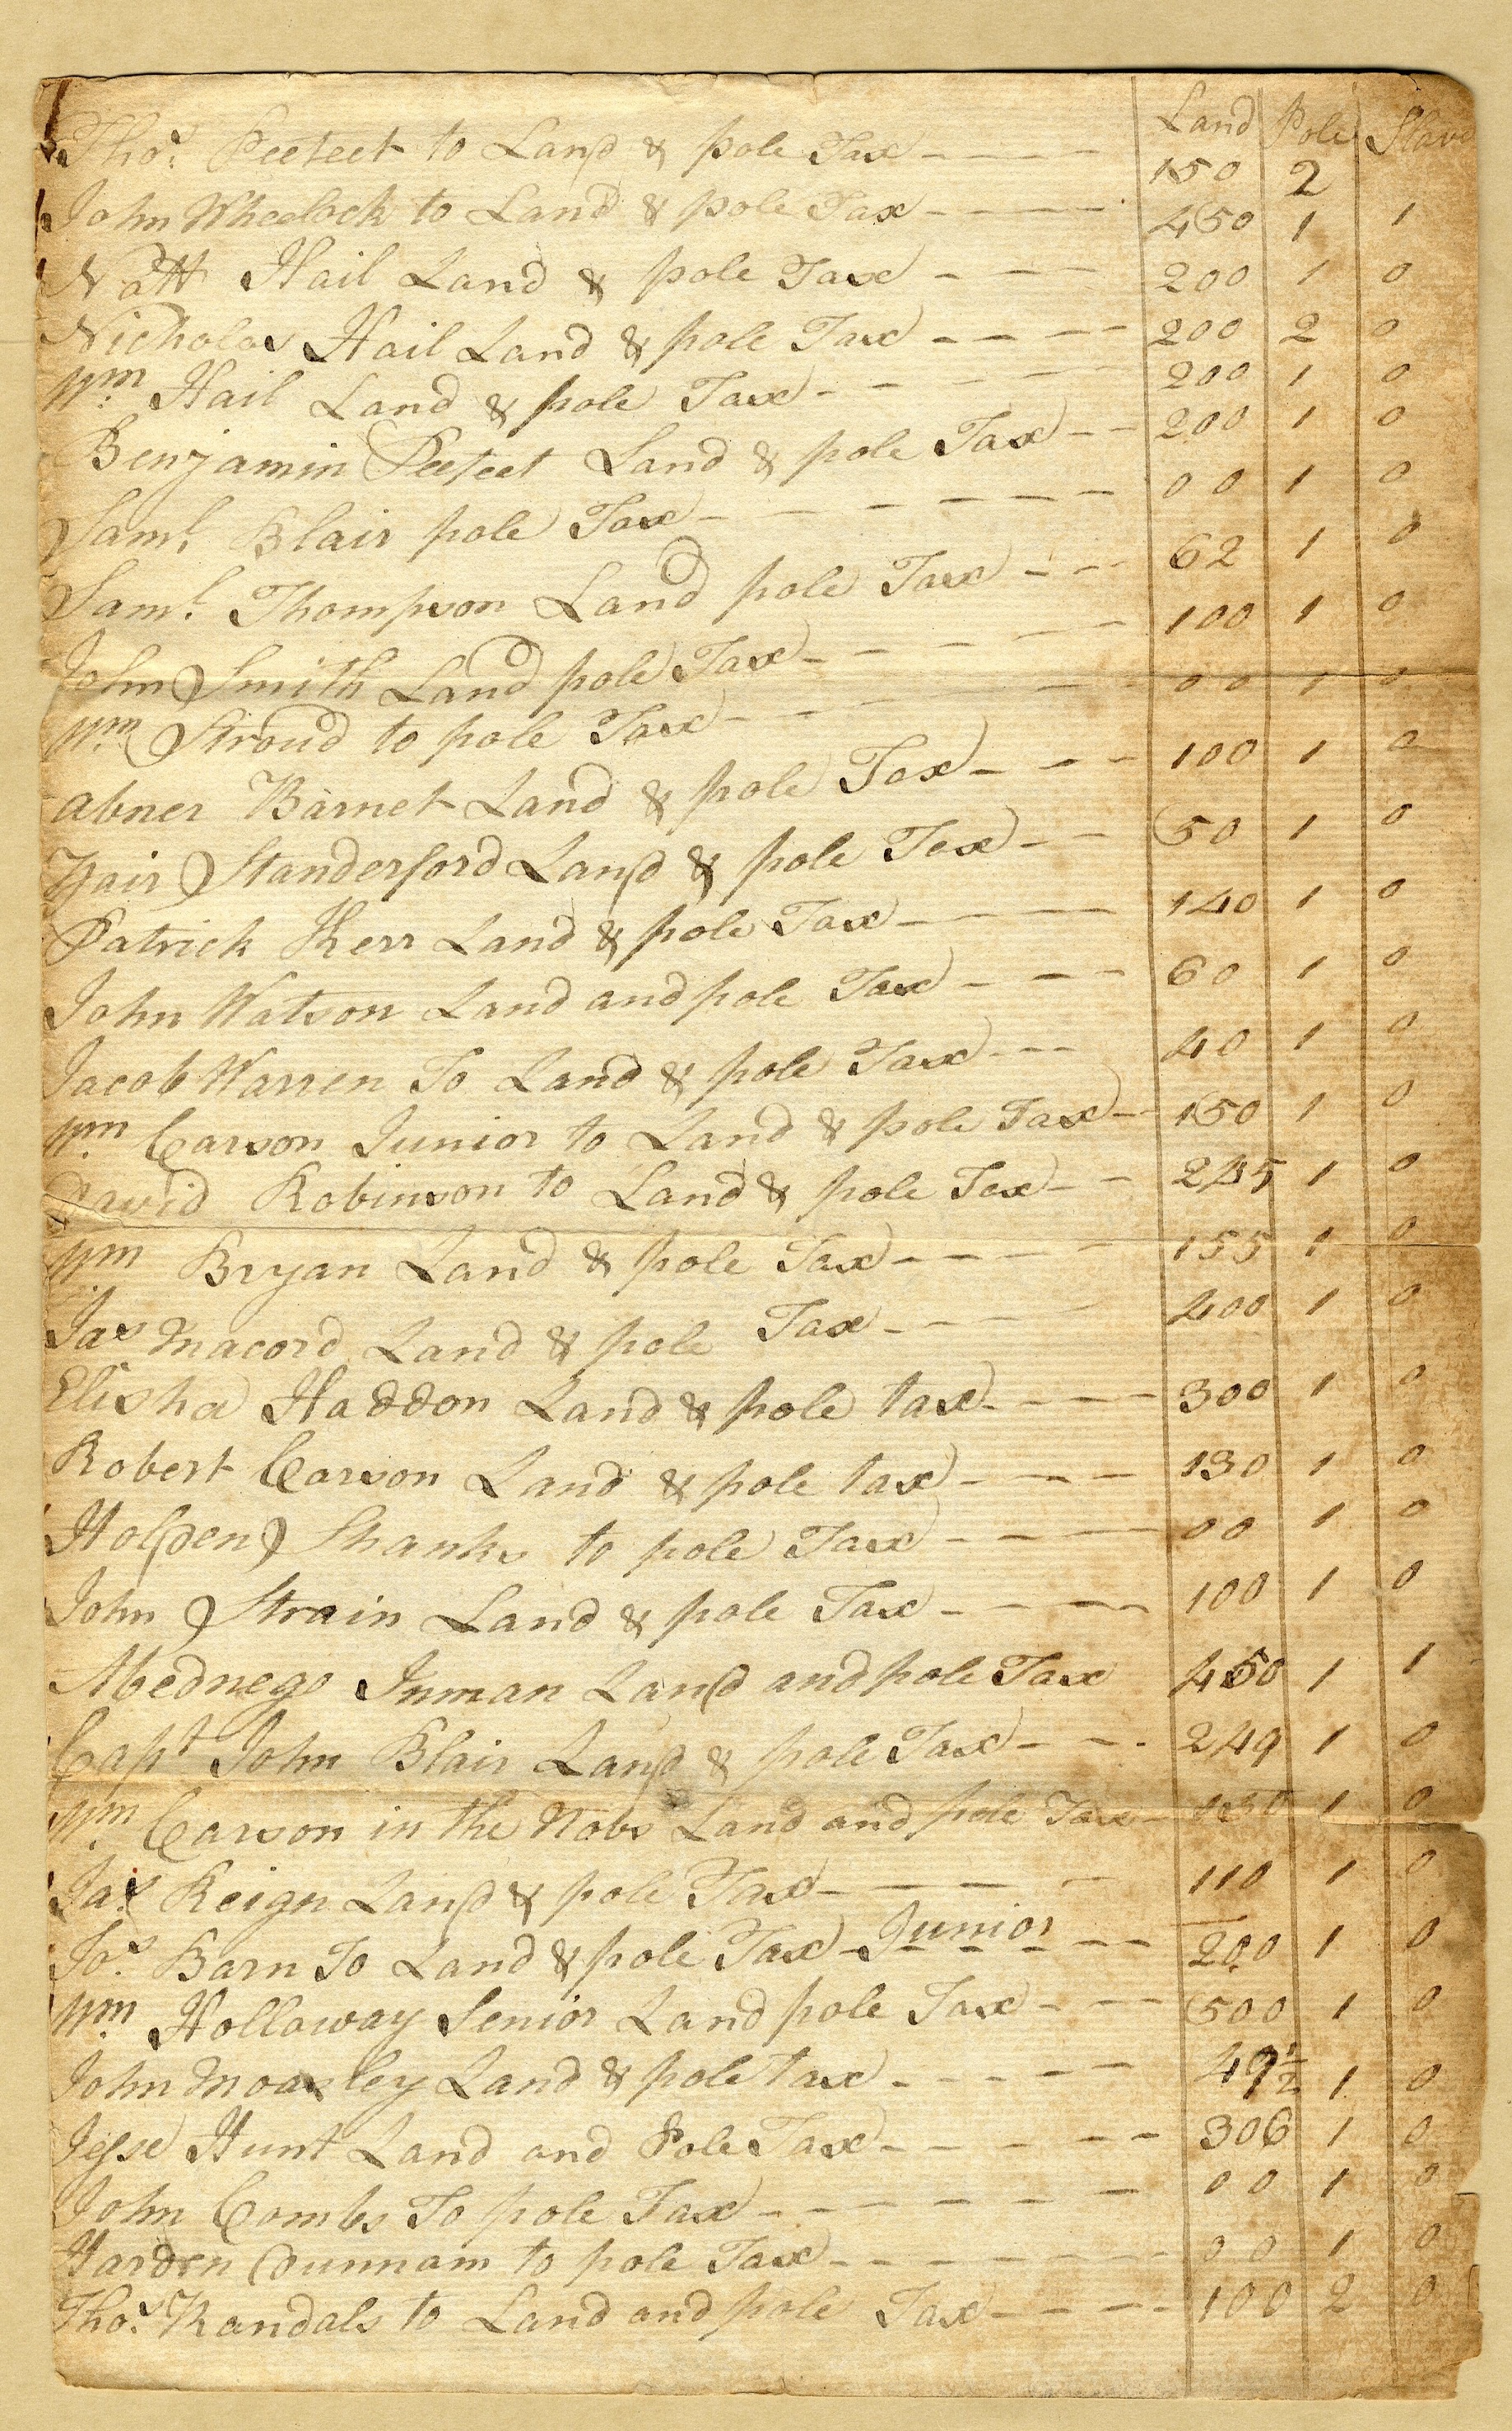 Land Pole Slave
Thos. Peeteet to Land & pole Tax - - - - 150 2
John Wheelock to Land & pole Tax - - - - 450 1 1
Natt Hail Land & pole Tax - - - 200 1 0
Nicholas Hail Land & pole Tax - - - - 200 2 0
Wm. Hail Land & pole Tax - - - - - 200 1 0
Benjamin Peeteet Land & pole Tax - - 200 1 0
Saml. Blair pole Tax - - - - - - 00 1 0
Saml. Thompson Land pole Tax - - - 62 1 0
John Smith Land pole Tax - - - - - 100 1 0
Wm. Stroud to pole Tax - - - - 00 1 0
Abner Barnet Land & pole Tax - - - 100 1 0
Standerford Land & pole Tax - - 50 1 0
Patrick Kerr Land & pole Tax - - - - 140 1 0
John Watson Land and pole Tax - - - 60 1 0
Jacob Warren To Land & pole Tax - - - 40 1 0
Wm. Carson Junior to Land & pole Tax - - 150 1 0
David Robinson to Land & pole Tax - - 245 1 0
Wm. Bryan Land & pole Tax - - - - - 155 1 0
Jas Macord Land & pole Tax - - - - 400 1 0
Elisha Haddon Land & pole tax - - - - 300 1 0
Robert Carson Land & pole tax - - - 130 1 0
Holden Shanks to pole Tax - - - - 00 1 0
John Strain Land & pole Tax - - - - 100 1 0
Abednego Inman Land and pole Tax 450 1 1
Capt John Blair Land & pole Tax - - - 249 1 0
Wm. Carson in the Nobs Land and pole Tax - 130 1 0
Jas. Reign Land & pole Tax - - - - - 110 1 0
Jos. Barn To Land & pole Tax - Junior - - 200 1 0
Wm. Hollaway Senior Land pole Tax - - - 500 1 0
John Moazley Land & pole tax - - - - - 49½ 1 0
Jesse Hunt Land and Pole Tax - - - - - 306 1 0
John Combs To pole Tax - - - - - - 00 1 0
Harden Dunnam to pole Tax - - - - - - 00 1 0
Thos. Randals to Land and pole Tax - - - - 100 2 0